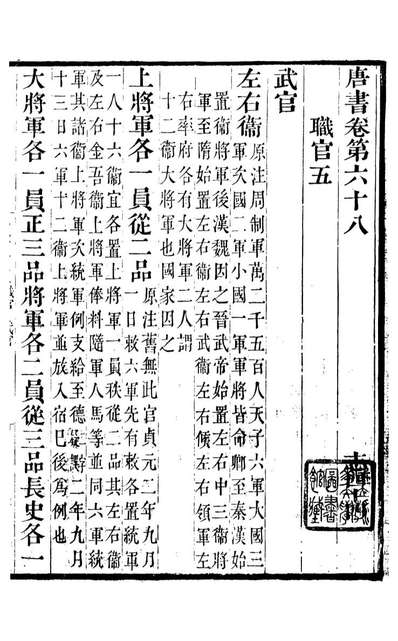 唐書卷第六十八
職官五
武官
左右衞
原注周制軍萬二千五百人天子六軍大國三
軍次國二軍小國一軍軍將皆命卿至秦漢始
置衞將軍後漢魏因之晉武帝始置左右中三衞將
軍至隋始置左右衞左右武衞左右候左右領軍左
右率府各有大將軍二人謂
十二衞大將軍也國家因之
上將軍各一員從二品
原注舊無此官貞元二年九月
一日敕六軍先有敕各置統軍
一人十六衞宜各置上將軍一員秩從二品其左右衞
及左右金吾衞上將軍俸料隨軍人馬等並同六軍統
軍其諸衞上將軍次統軍例支給至德二年九月
十三日六軍十二衞上將軍並放入宿已後爲例也
大將軍各一員正三品將軍各二員從三品長史各一